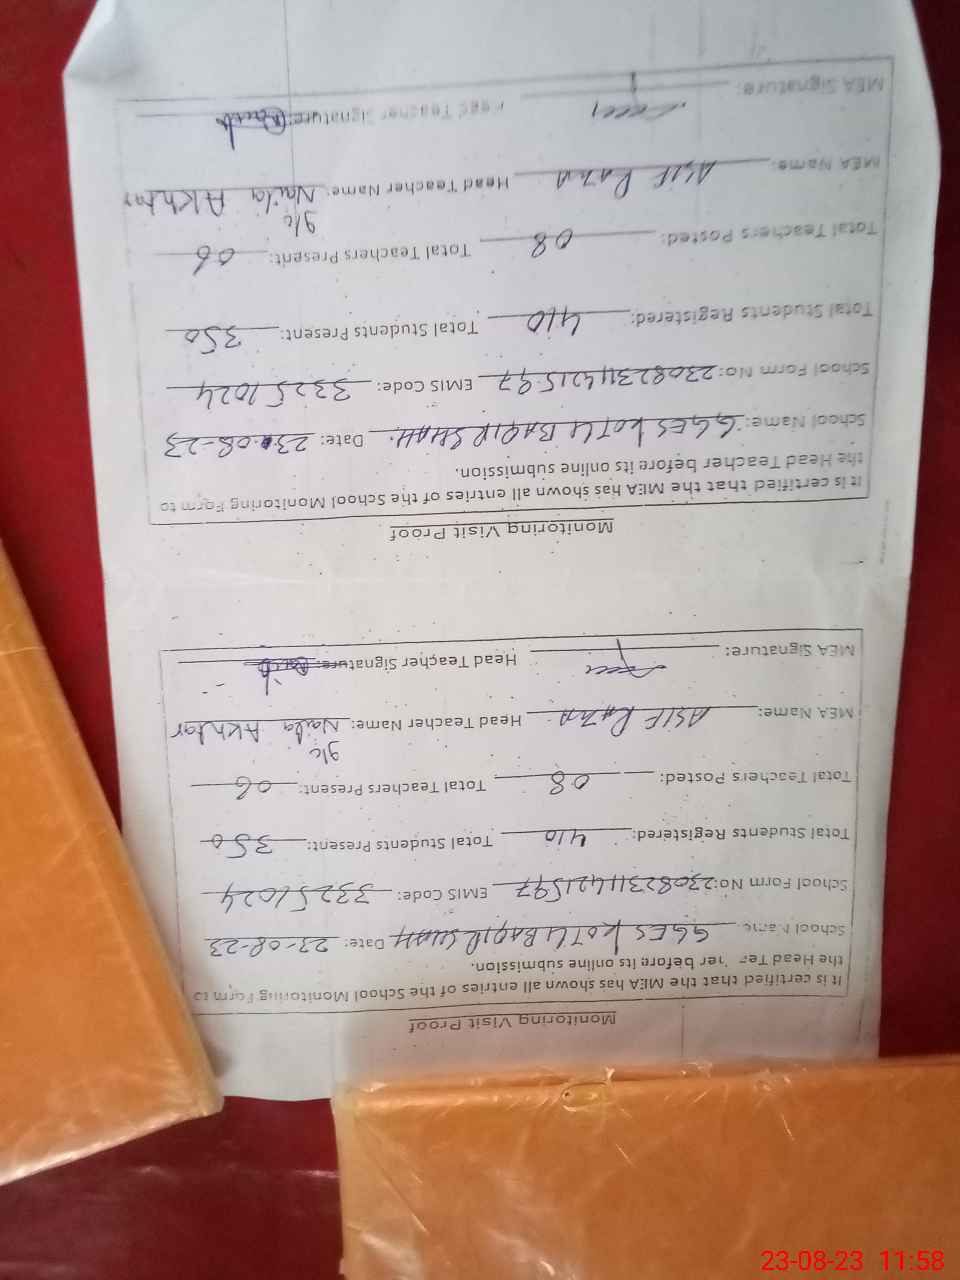 Monitoring Visit Proof
It is certified that the MEA has shown all entries of the School Monitoring Form to
the Head Teacher before its online submission.
School Name: GGES KOTLI BAQIR SHAH Date: 23-08-23
School Form No: 23082311421597 EMIS Code: 33251024
Total Students Registered: 410 Total Students Present: 350
Total Teachers Posted: 08 Total Teachers Present: 06
g/c
MEA Name: ASIF RAZA Head Teacher Name: Naila Akhtar
MEA Signature: Head Teacher Signature:
Monitoring Visit Proof
It is certified that the MEA has shown all entries of the School Monitoring Form to
the Head Teacher before its online submission.
School Name: GGES KOTLI BAQIR SHAH Date: 23-08-23
School Form No: 23082311421597 EMIS Code: 33251024
Total Students Registered: 410 Total Students Present: 350
Total Teachers Posted: 08 Total Teachers Present: 06
g/c
MEA Name: ASIF RAZA Head Teacher Name: Naila Akhtar
MEA Signature: Head Teacher Signature:
23-08-23 11:58